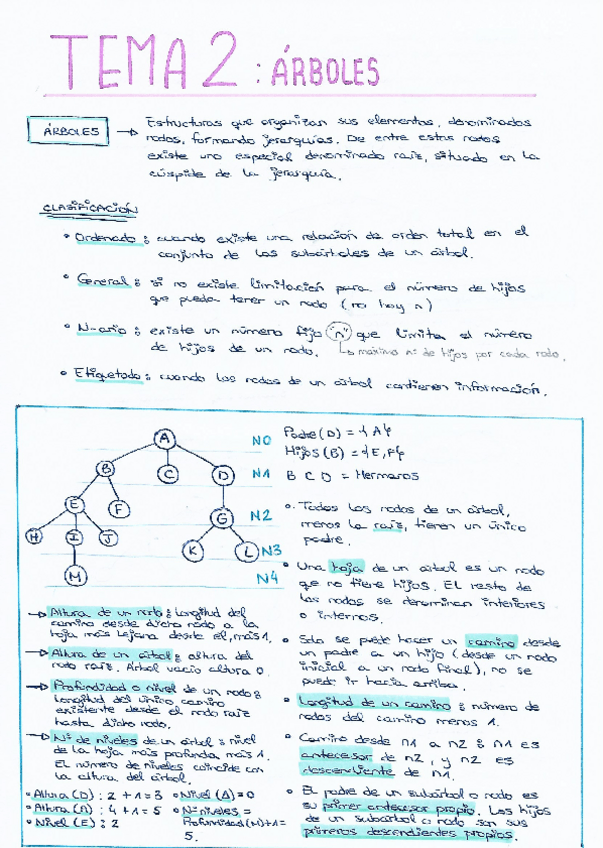 TEMA 2 : ÁRBOLES
ÁRBOLES → Estructuras que organizan sus elementos, denominados
nodos, formando jerarquías. De entre estos nodos
existe uno especial denominado raíz, situado en la
cúspide de la jerarquía.
CLASIFICACIÓN
• Ordenado : cuando existe una relación de orden total en el
conjunto de los subárboles de un árbol.
• General : si no existe limitación para el número de hijos
que pueda tener un nodo (no hay n)
• N-ario : existe un número fijo "n" que limita el número
de hijos de un nodo. ↳ máximo nº de hijos por cada nodo.
• Etiquetado : cuando los nodos de un árbol contienen información.
A N0
B C D N1
E F G N2
H I J K L N3
M N4
Padre(D) = {A}
Hijos(B) = {E,F}
B C D = Hermanos
• Todos los nodos de un árbol,
menos la raíz, tienen un único
padre.
• Una hoja de un árbol es un nodo
que no tiene hijos. El resto de
los nodos se denominan interiores
o internos.
• Solo se puede hacer un camino desde
un padre a un hijo (desde un nodo
inicial a un nodo final), no se
puede ir hacia arriba.
• Longitud de un camino : número de
nodos del camino menos 1.
• Camino desde n1 a n2 : n1 es
antecesor de n2, y n2 es
descendiente de n1.
• El padre de un subárbol o nodo es
su primer antecesor propio. Los hijos
de un subárbol o nodo son sus
primeros descendientes propios.
→ Altura de un nodo : Longitud del
camino desde dicho nodo a la
hoja más lejana desde él, más 1.
→ Altura de un árbol : altura del
nodo raíz. Árbol vacío altura 0.
→ Profundidad o nivel de un nodo :
Longitud del único camino
existente desde el nodo raíz
hasta dicho nodo.
→ Nº de niveles de un árbol : nivel
de la hoja más profunda, más 1.
El número de niveles coincide con
la altura del árbol.
• Altura (D) : 2 + 1 = 3 • Nivel (A) = 0
• Altura (A) : 4 + 1 = 5 • Nº niveles =
• Nivel (E) : 2 Profundidad (M) + 1 =
5.